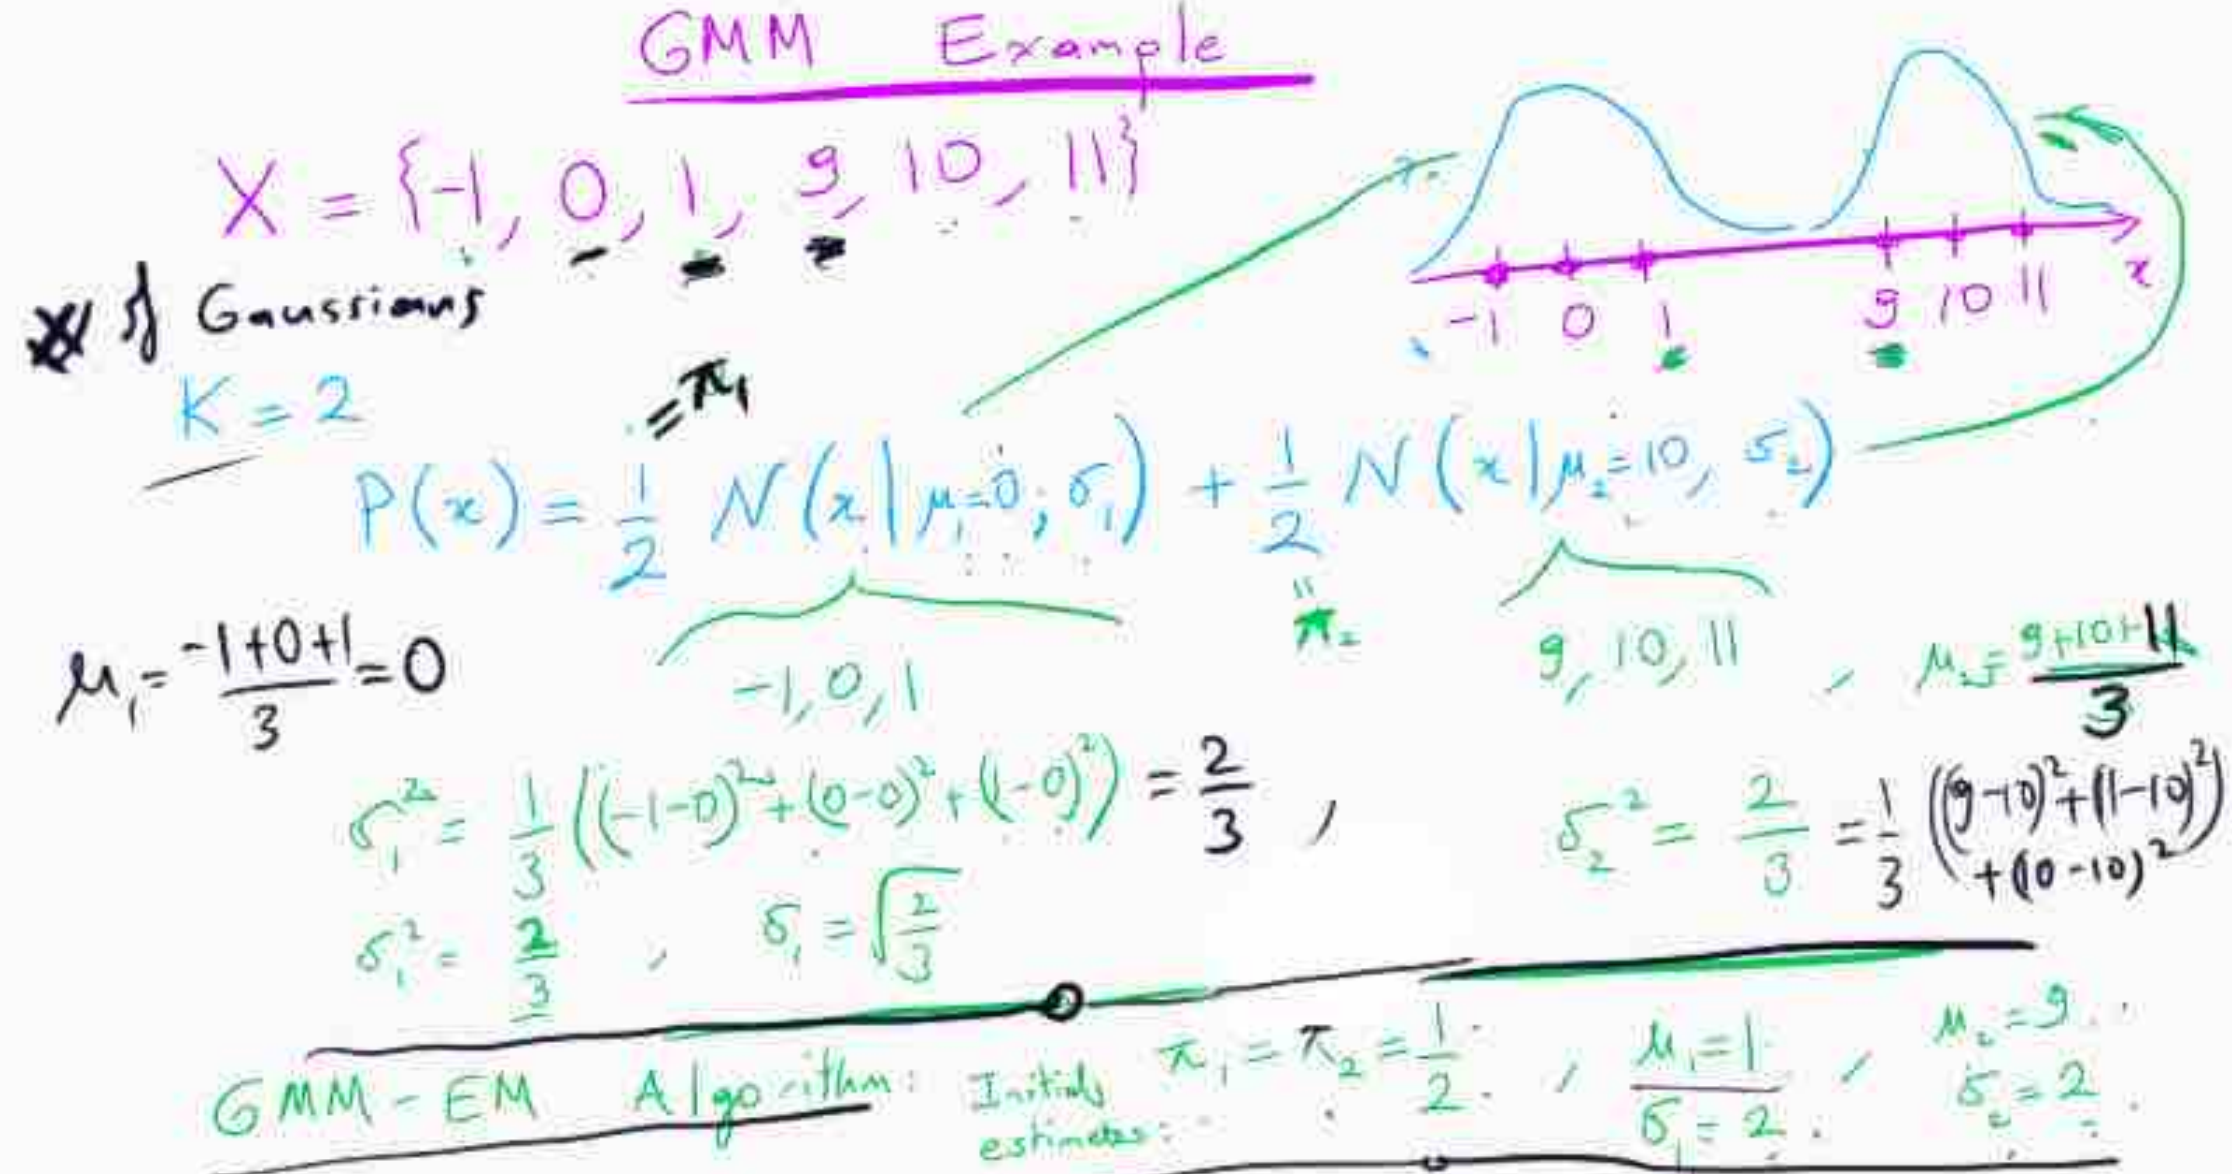 GMM Example
X = {-1, 0, 1, 9, 10, 11}
-1 0 1 9 10 11 x
# of Gaussians
K = 2
= π₁
P(x) = 1/2 N(x | μ₁=0, σ₁) + 1/2 N(x | μ₂=10, σ₂)
" π₂
μ₁ = (-1+0+1)/3 = 0
-1, 0, 1
9, 10, 11 , μ₂ = (9+10+11)/3
σ₁² = 1/3 ((-1-0)² + (0-0)² + (1-0)²) = 2/3 , σ₂² = 2/3 = 1/3 ((9-10)² + (11-10)² + (10-10)²)
σ₁² = 2/3 , σ₁ = √(2/3)
GMM - EM Algorithm: Initial estimates: π₁ = π₂ = 1/2 , μ₁ = 1 , μ₂ = 9
σ₁ = 2 . σ₂ = 2 .